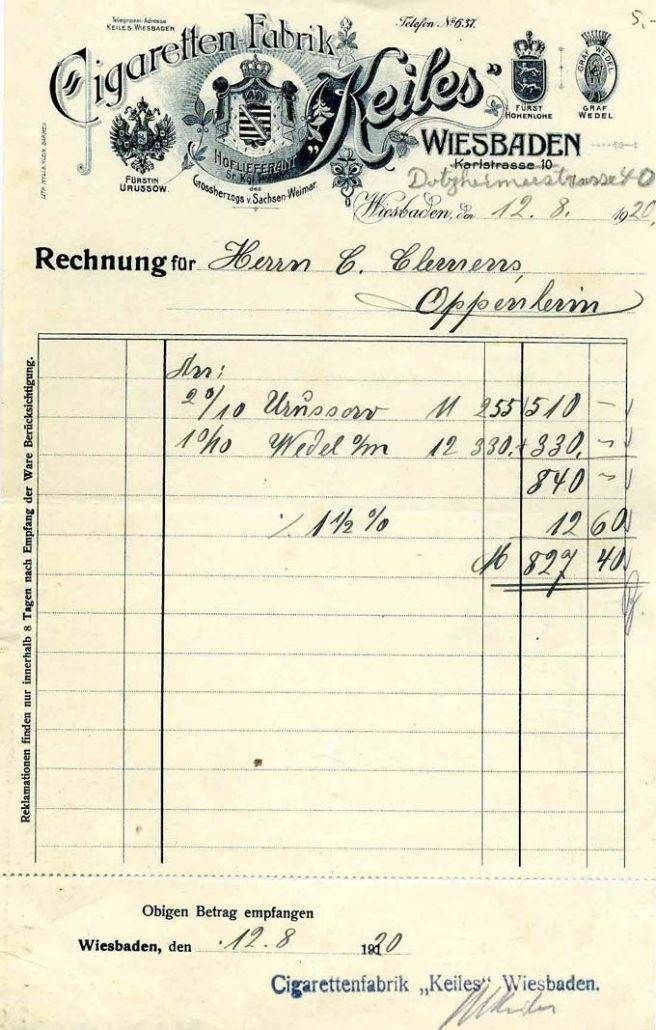 5,-
Telegramm-Adresse
KEILES WIESBADEN.
Telefon No 637.
Cigaretten Fabrik
„Keiles"
FÜRSTIN
URUSSOW.
HOFLIEFERANT
Sr. Kgl.
des
Grossherzogs v. Sachsen-Weimar.
FÜRST
HOHENLOHE
GRAF WEDEL
GRAF
WEDEL
WIESBADEN
Karlstrasse 10
Dotzheimerstrasse 40
Wiesbaden, den 12. 8. 1920.
Rechnung für Herrn C. Clemens,
Oppenheim
An:
20/10 Urussow 11 255 510 —
10/10 Wedel o/m 12 330. 330. —
840 —
% 1 1/2 % 12 60
M 827 40
Reklamationen finden nur innerhalb 8 Tagen nach Empfang der Ware Berücksichtigung.
Obigen Betrag empfangen
Wiesbaden, den 12.8 1920
Cigarettenfabrik „Keiles" Wiesbaden.